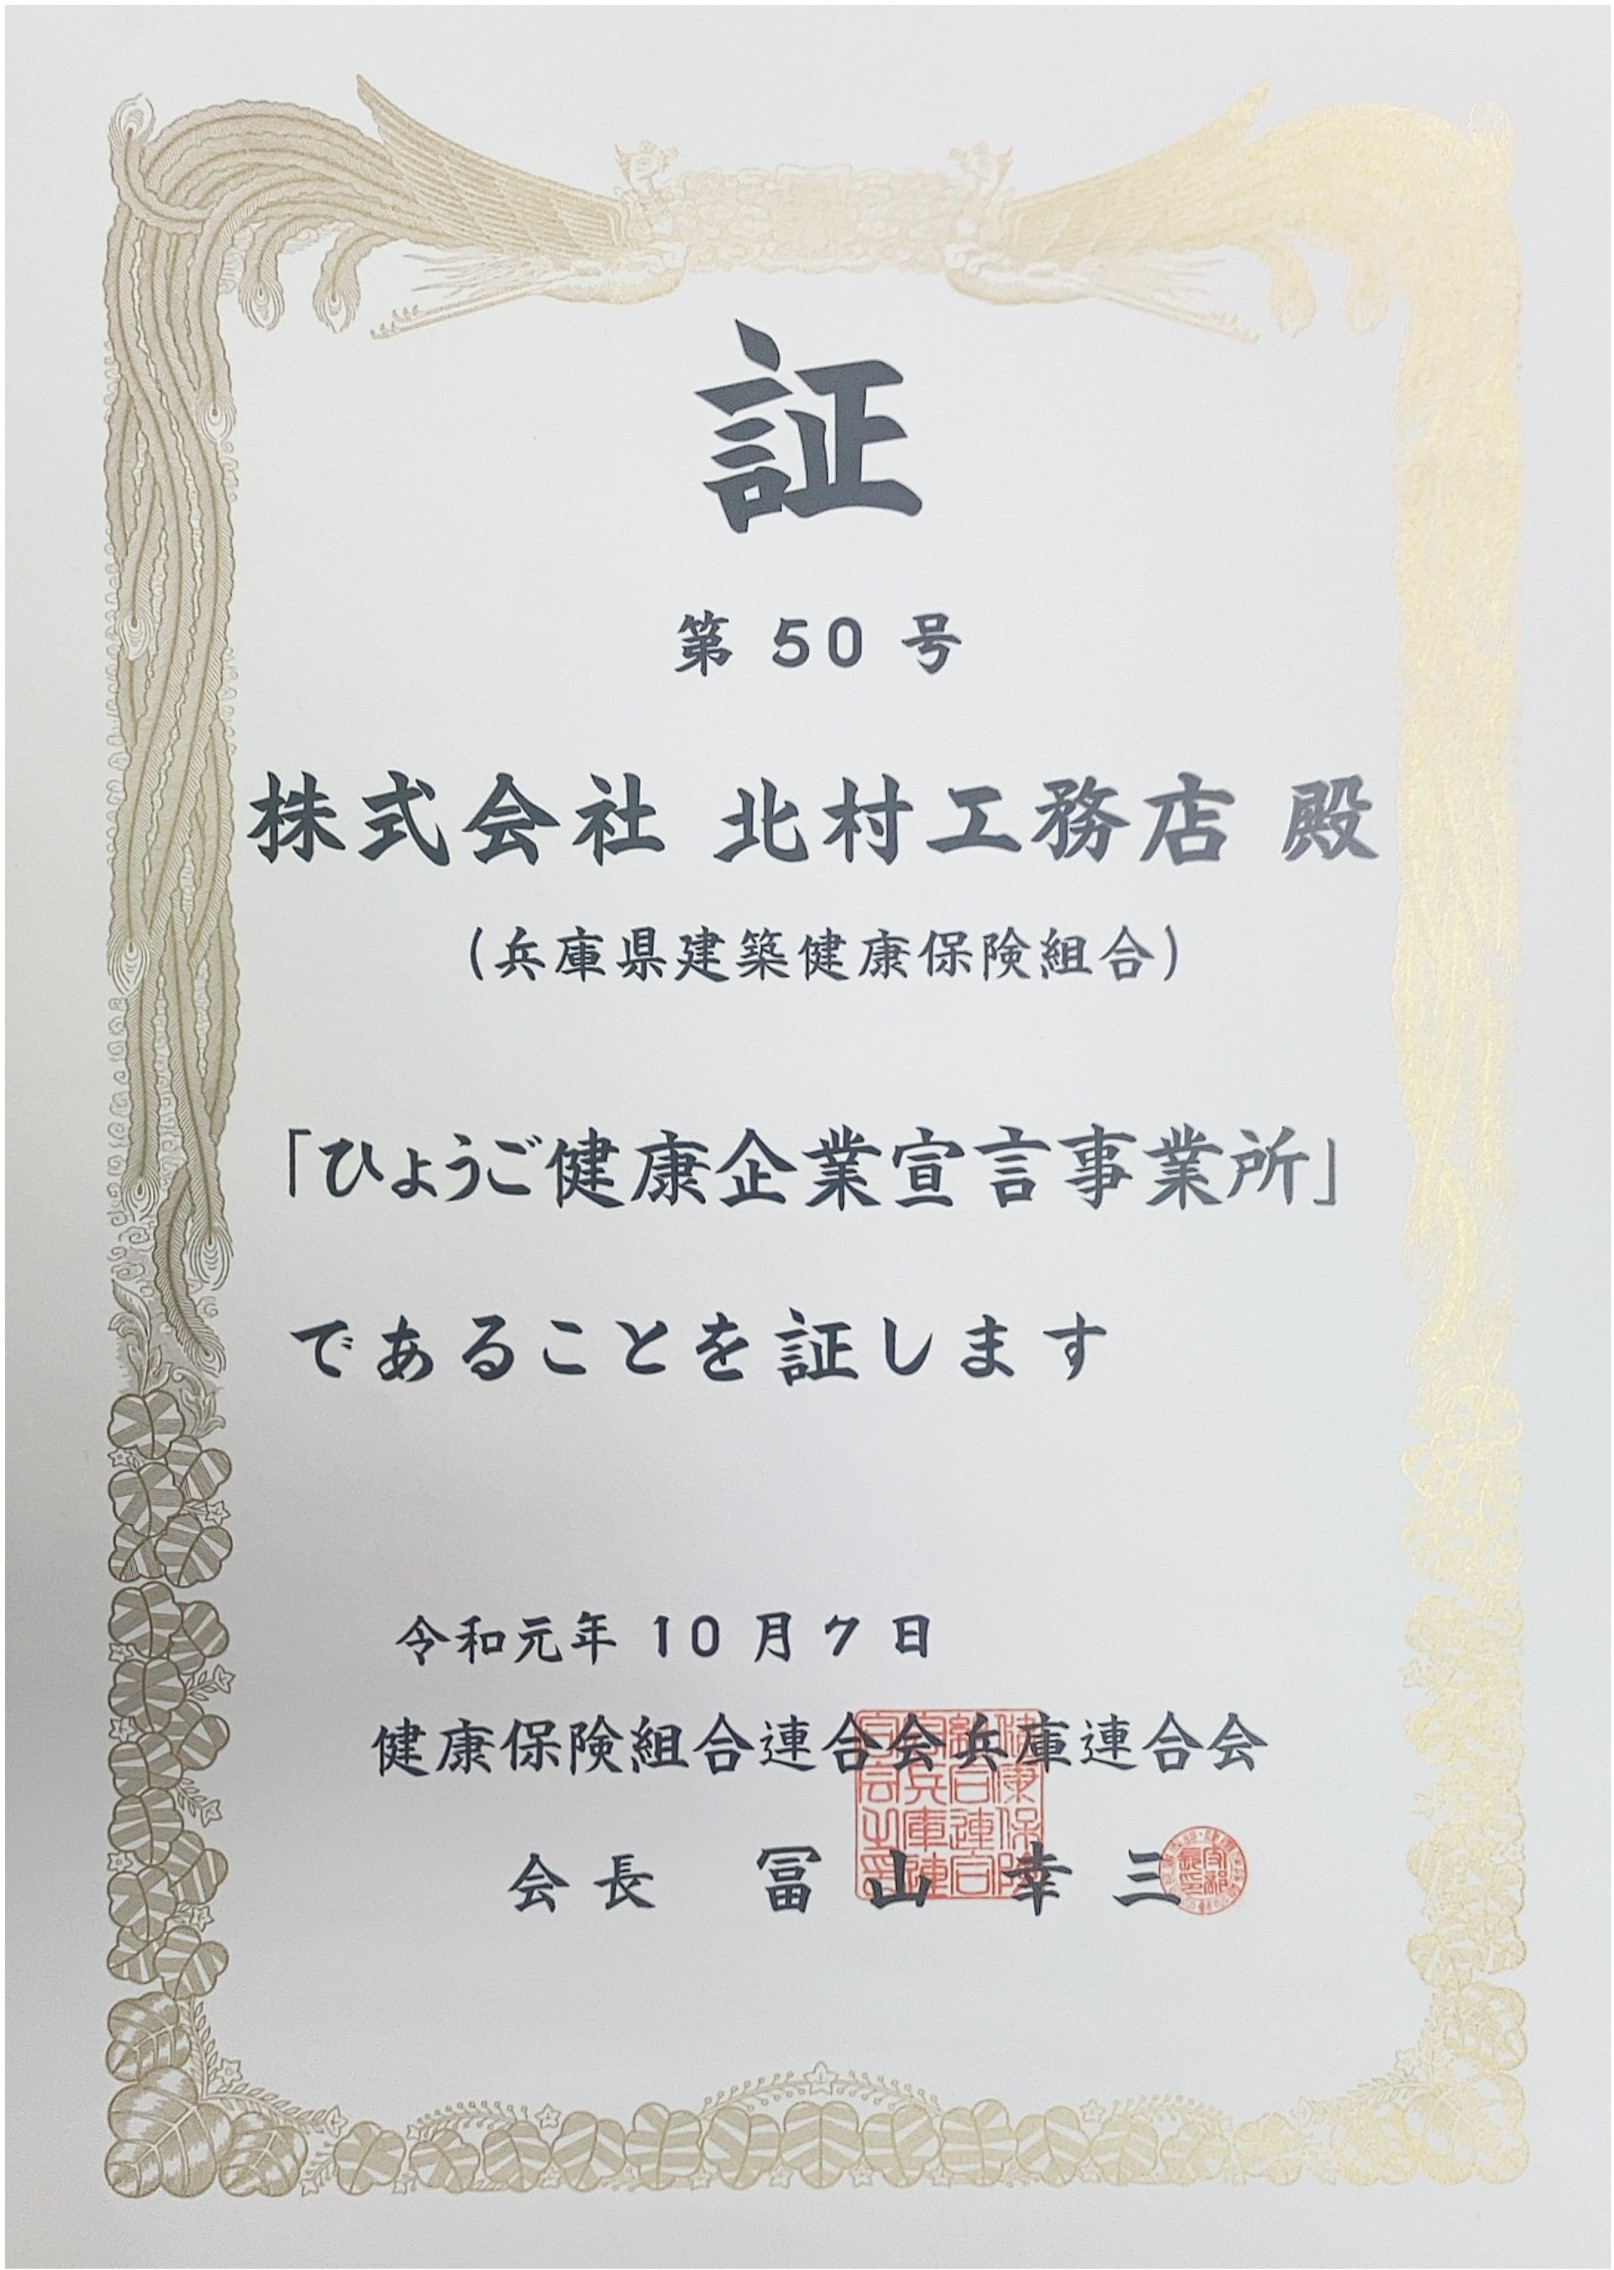 証
第 50 号
株式会社 北村工務店 殿
(兵庫県建築健康保険組合)
「ひょうご健康企業宣言事業所」
であることを証します
令和元年 10 月 7 日
健康保険組合連合会兵庫連合会
会長 冨山幸三